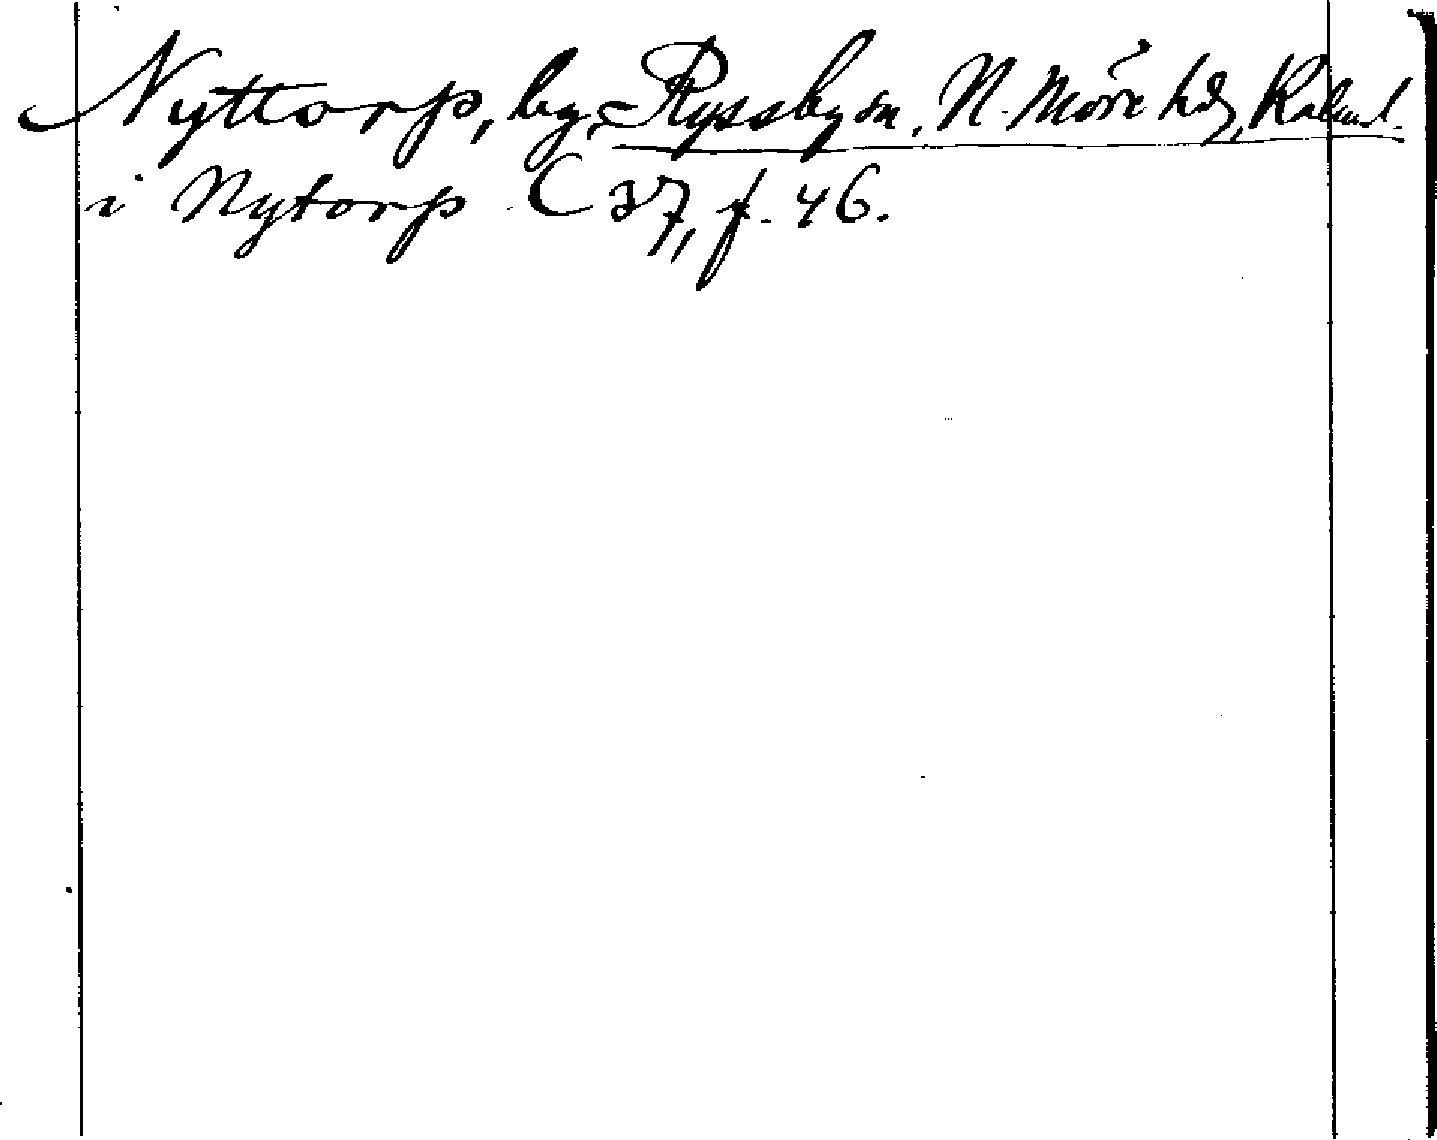 Nyttorp, by, Ryssby sn, N. Möre hd, Kalm. l.
i Nytorp C 37, f. 46.